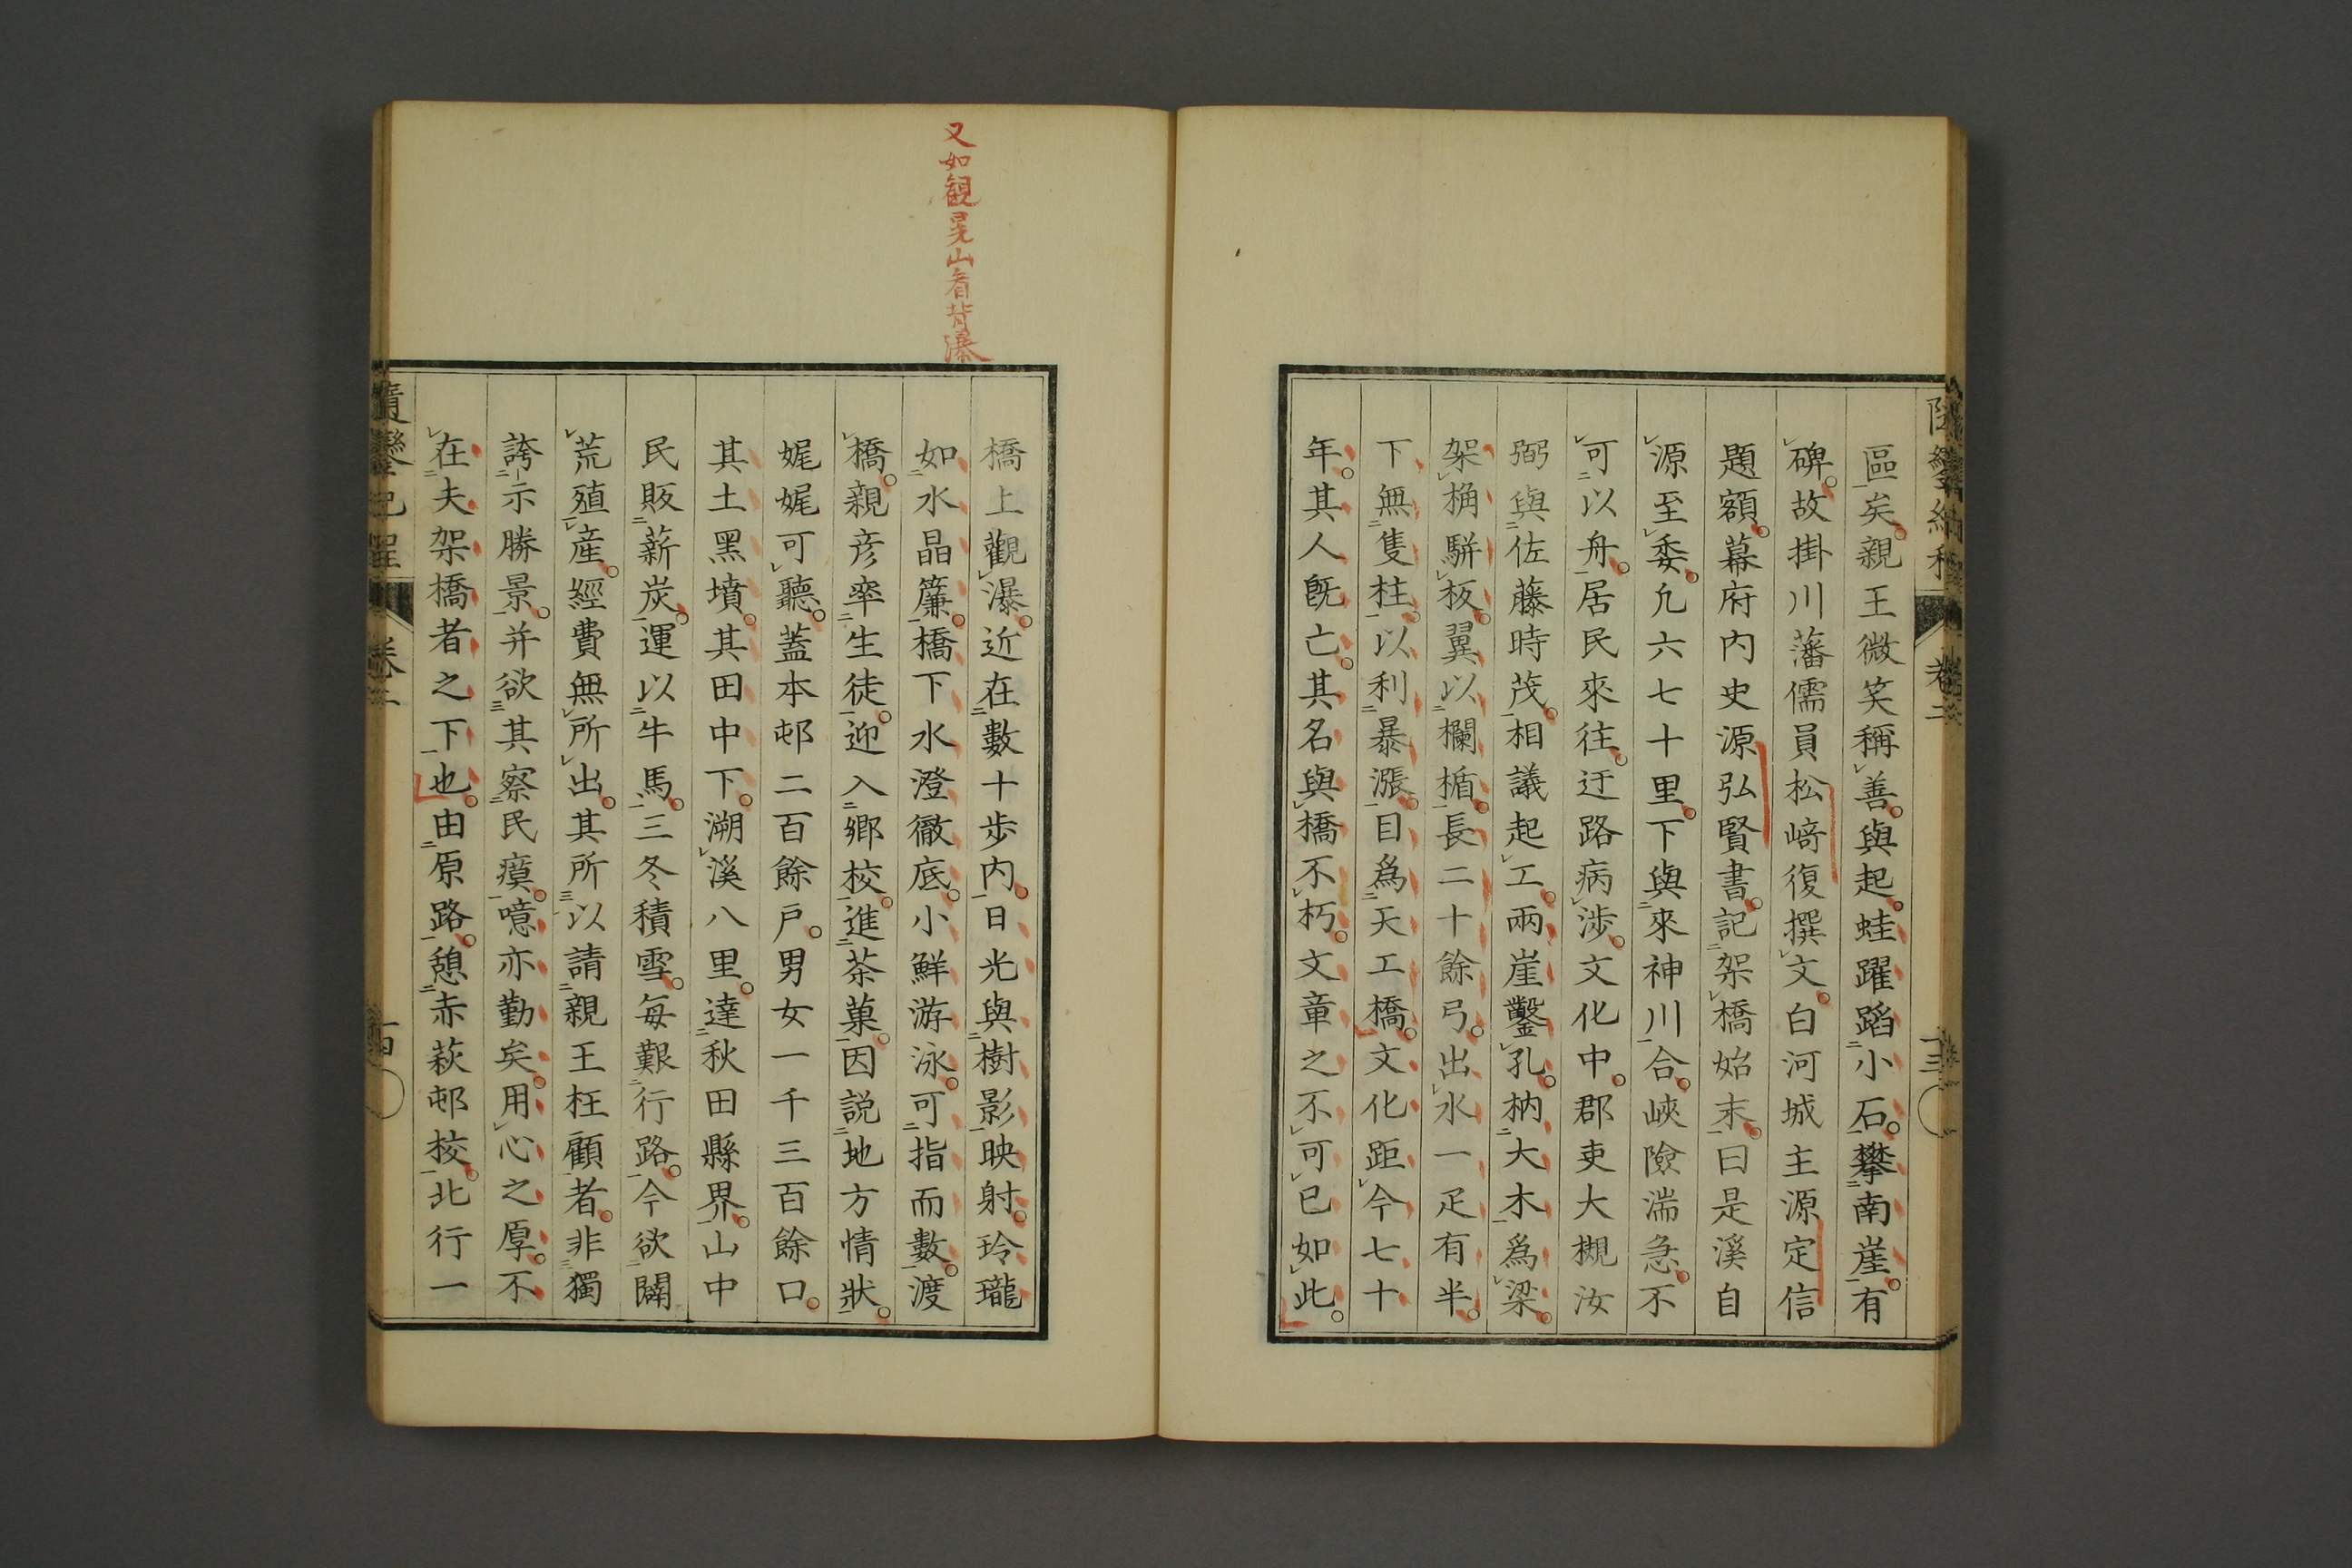 區矣親王微笑稱善與起蛙躍蹈小石攀南崖有
碑故掛川藩儒員松﨑復撰文白河城主源定信
題額幕府内史源弘賢書記架橋始末曰是溪自
源至委凢六七十里下與來神川合峽險湍急不
可以舟居民來往迂路病涉文化中郡吏大槻汝
弼與佐藤時茂相議起工兩崖鑿孔枘大木爲梁
架桷駢板翼以欄楯長二十餘弓出水一疋有半
下無隻柱以利暴漲目爲天工橋文化距今七十
年其人既亡其名與橋不朽文章之不可已如此
又如觀晃山看背瀑
橋上觀瀑近在數十歩内日光與樹影映射玲瓏
如水晶簾橋下水澄徹底小鮮游泳可指而數渡
橋親彦率生徒迎入鄉校進茶菓因説地方情狀
娓娓可聽蓋本邨二百餘戸男女一千三百餘口
其土黑墳其田中下溯溪八里達秋田縣界山中
民販薪炭運以牛馬三冬積雪毎艱行路今欲闢
荒殖産經費無所出其所以請親王枉顧者非獨
誇示勝景并欲其察民瘼噫亦勤矣用心之厚不
在夫架橋者之下也由原路憩赤萩邨校北行一